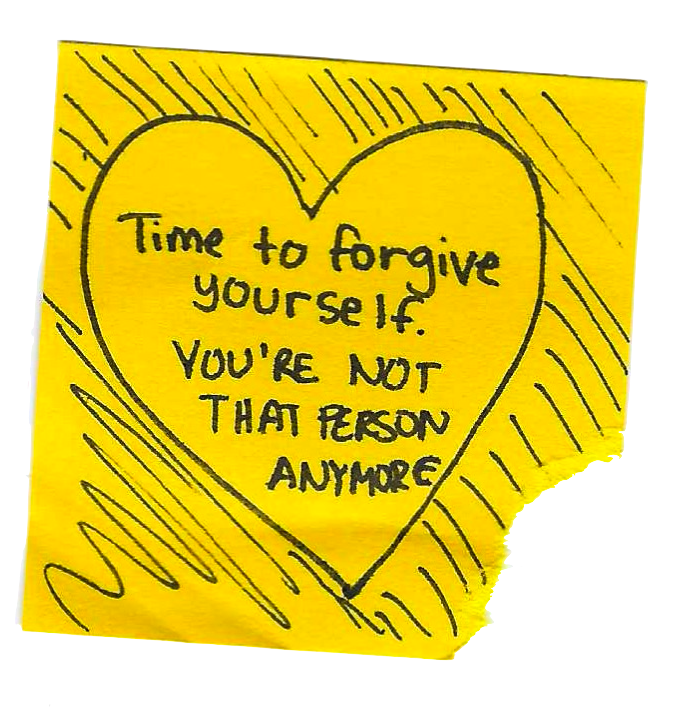 Time to forgive
yourself.
YOU'RE NOT
THAT PERSON
ANYMORE